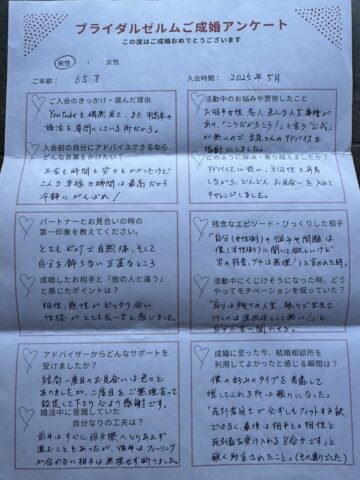 ブライダルゼルムご成婚アンケート
この度はご成婚おめでとうございます
男性 ・ 女性
ご年齢： 65才
入会時期： 2025年 5月
ご入会のきっかけ・選んだ理由
YouTubeを偶然見て、また中高年の
婚活を専門にしている所だから。
入会前の自分にアドバイスできるなら、
どんな言葉をかけたい？
お金も時間も労力もかかったけど
こんな幸福な時間は最高だから
冷静にがんばれ！
パートナーとお見合いの時の
第一印象を教えてください。
とてもピュアで自然体、そして
自分を飾らない正直なところ
成婚したお相手と「他の人と違う」
と感じたポイントは？
相性、感性がピッタリ合い
性格がとても良いと感じました。
アドバイザーからどんなサポートを
受けましたか？
結局一度目のお見合いは
ありましたが、二度目をご無理言って
設定して下さり心より感謝です。
婚活中に意識していた
自分なりの工夫は？
前半はすぐに仮交際へとりあえず
進むこともあったが、後半はフィーリング
が合わない相手は無理せず断りました。
活動中のお悩みや苦労したこと
お相手女性、各人色んな人生事情が
あり、"こうだからこう！"と言う"公式"
が無いので立花さんのアドバイスを
指針にしました。
どのように解決・乗り越えましたか？
アドバイスに従い、方向性を共有
しながら、どんどんお見合いを入れて
チャレンジしました。
残念なエピソード・びっくりした相手
「自分(女性側)の悩みや問題は
僕(男性側)に聞いて欲しいけど
男の弱音、グチは無理！」と言われた時。
活動中にくじけそうになった時、どう
やってモチベーションを保っていた？
「自分は残りの人生、独りで生きて
行くのは
自分に言い聞かせる。
成婚に至った今、結婚相談所を
利用してよかったと感じる瞬間は？
僕の好みのタイプを考慮して
増してくれる所は頼りになった。
ではなく、最後は相手との相性と
を受け入れる包容力です」と
鋭く所言されたこと。(その通りでした)